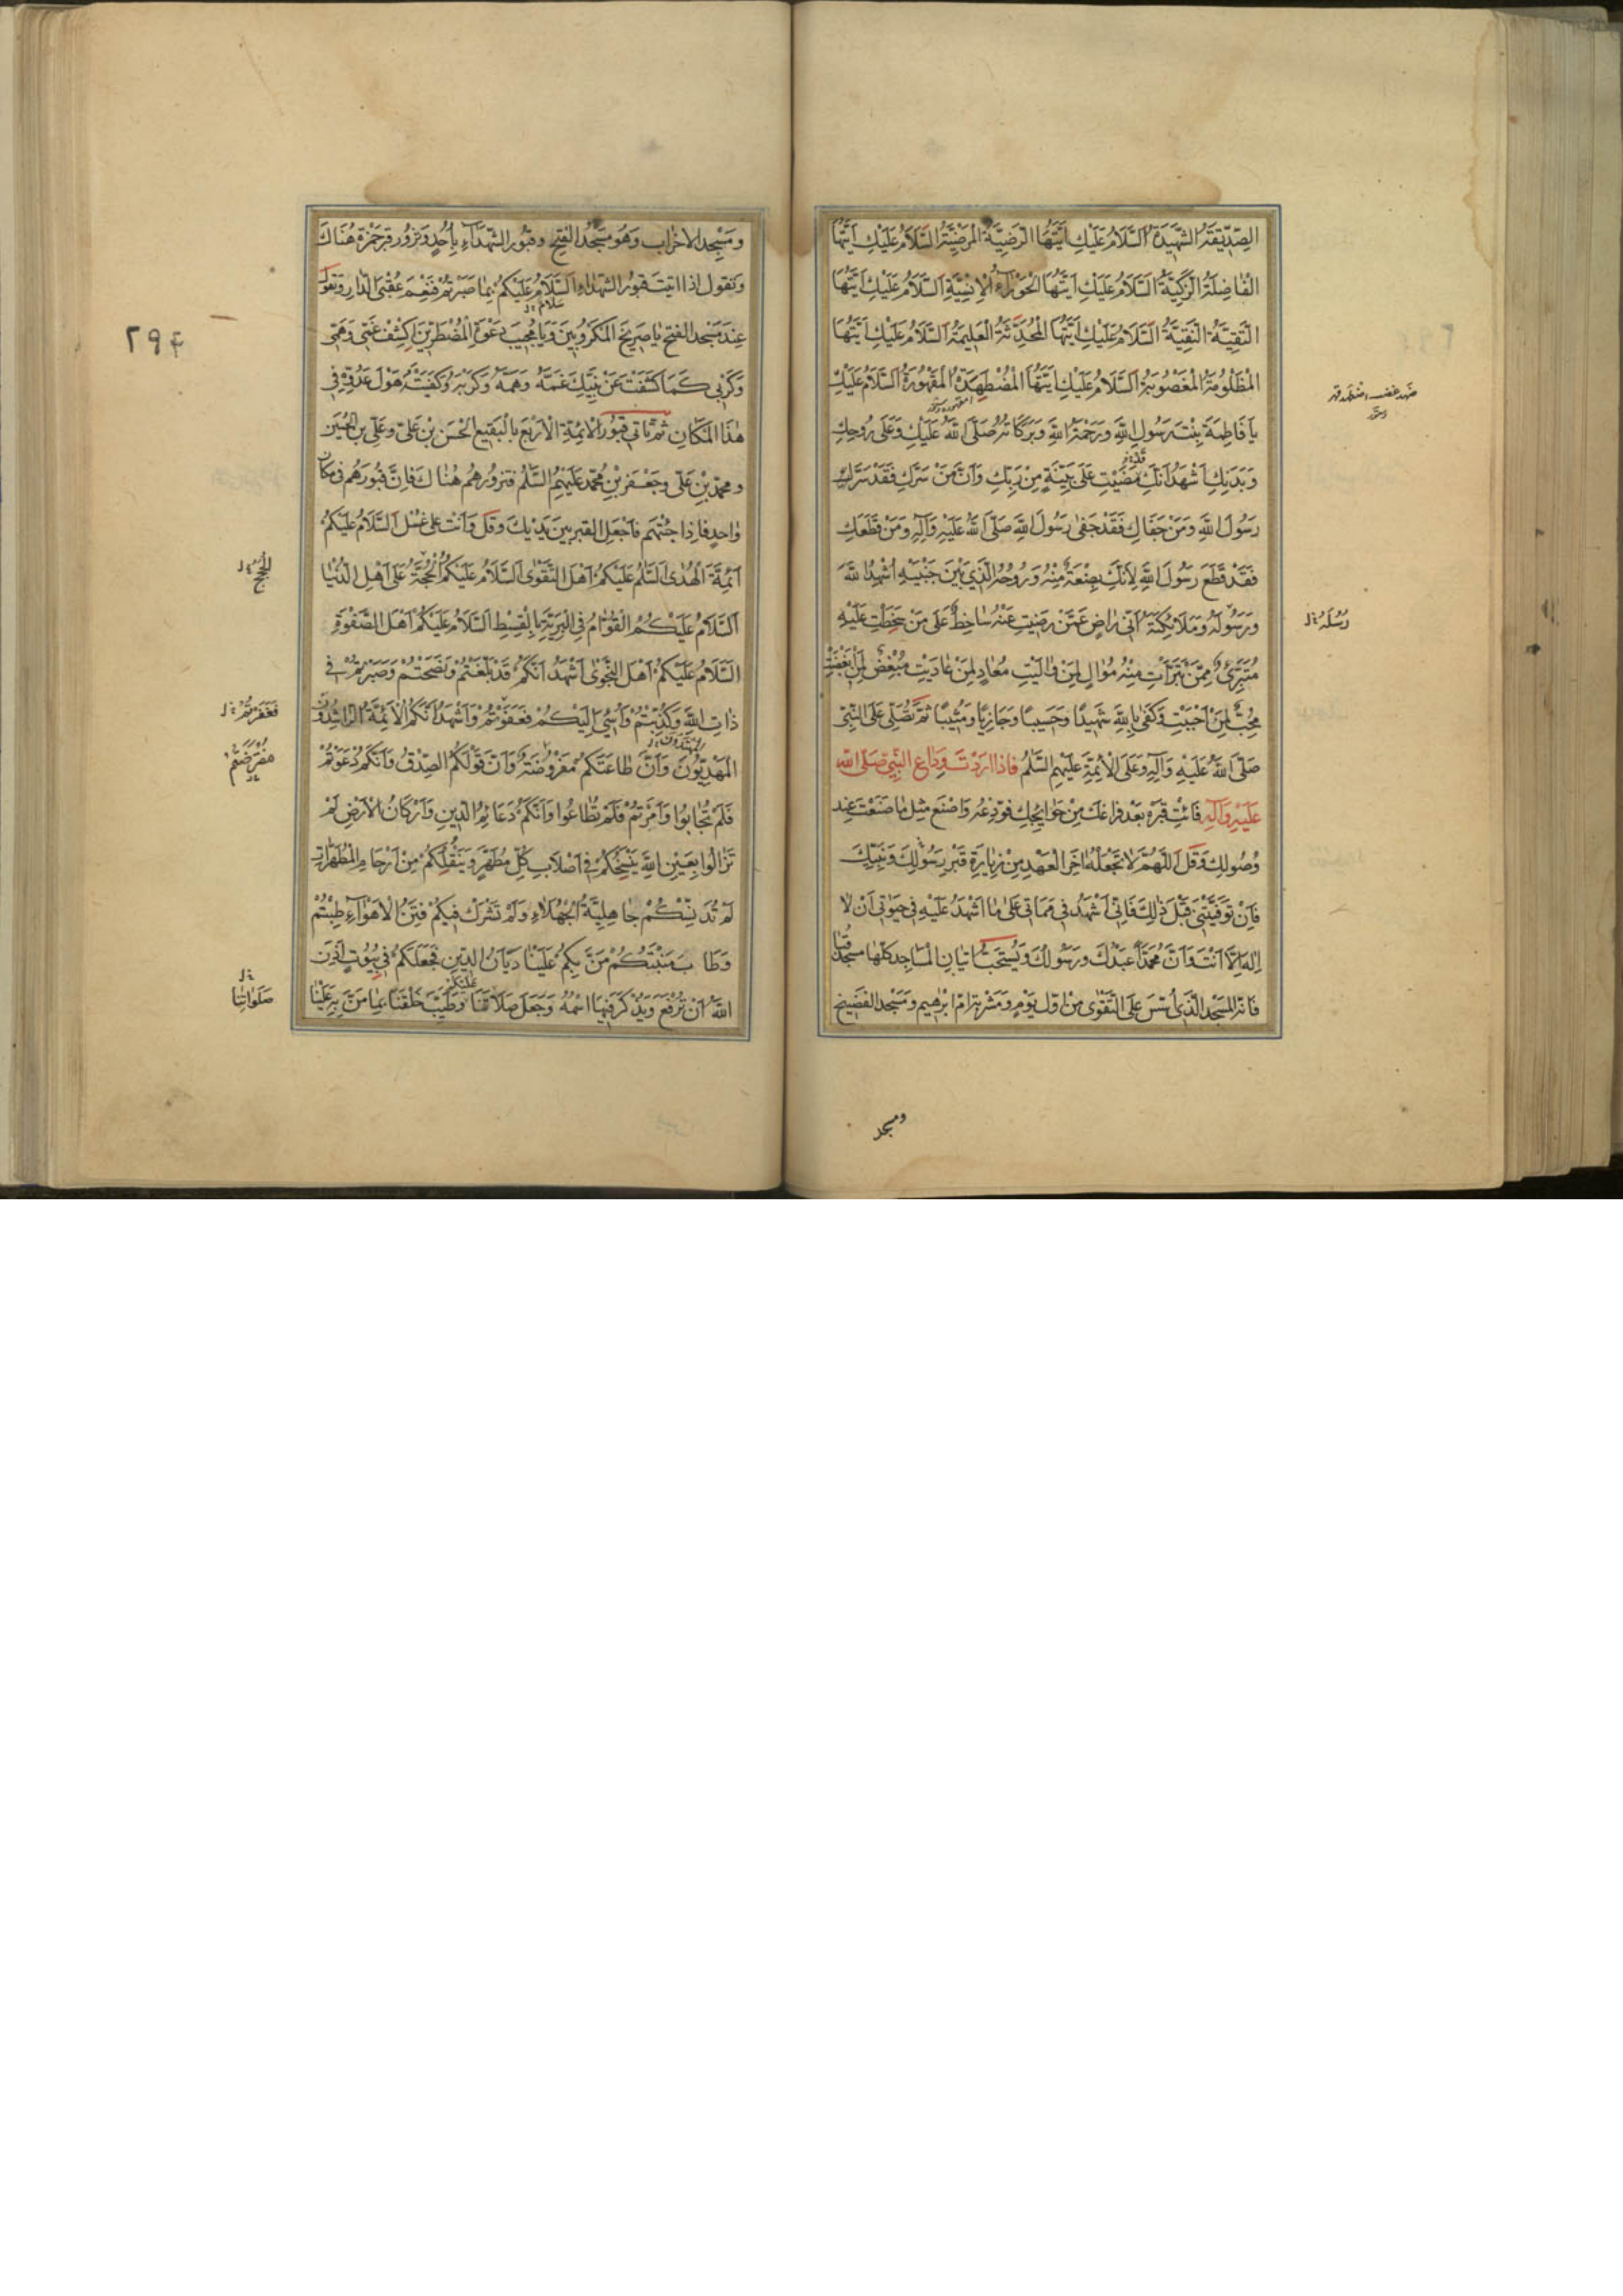 الصِّدِّيقَةُ الشَّهِيدَةُ السَّلَامُ عَلَيْكِ اَيَّتُهَا الرَّضِيَّةُ الْمَرْضِيَّةُ السَّلَامُ عَلَيْكِ اَيَّتُهَا
الْفَاضِلَةُ الزَّكِيَّةُ السَّلَامُ عَلَيْكِ اَيَّتُهَا الْحَوْرَاءُ الْاِنْسِيَّةِ اَلسَّلَامُ عَلَيْكِ اَيَّتُهَا
التَّقِيَّةُ النَّقِيَّةُ السَّلَامُ عَلَيْكِ اَيَّتُهَا الْمُحَدَّثَةُ الْعَلِيمَةُ السَّلَامُ عَلَيْكِ اَيَّتُهَا
الْمَظْلُومَةُ الْمَغْصُوبَةُ السَّلَامُ عَلَيْكِ اَيَّتُهَا الْمُضْطَهَدَةُ الْمَقْهُورَةُ السَّلَامُ عَلَيْكِ
يَا فَاطِمَةَ بِنْتَ رَسُولِ اللّٰهِ وَرَحْمَةُ اللّٰهِ وَبَرَكَاتُهُ صَلَّى اللّٰهُ عَلَيْكِ وَعَلٰى رُوحِكِ
وَبَدَنِكِ اَشْهَدُ اَنَّكِ مَضَيْتِ عَلٰى بَيِّنَةٍ مِنْ رَبِّكِ وَاَنَّ مَنْ سَرَّكِ فَقَدْ سَرَّ
رَسُولَ اللّٰهِ وَمَنْ جَفَاكِ فَقَدْ جَفٰى رَسُولَ اللّٰهِ صَلَّى اللّٰهُ عَلَيْهِ وَآلِهِ وَمَنْ قَطَعَكِ
فَقَدْ قَطَعَ رَسُولَ اللّٰهِ لِاَنَّكِ بِضْعَةٌ مِنْهُ وَرُوحُهُ الَّذِي بَيْنَ جَنْبَيْهِ اُشْهِدُ اللّٰهَ
وَرَسُولَهُ وَمَلَائِكَتَهُ اَنِّي رَاضٍ عَمَّنْ رَضِيتِ عَنْهُ سَاخِطٌ عَلٰى مَنْ سَخِطْتِ عَلَيْهِ
رُسُلَهُ
مُتَبَرِّئٌ مِمَّنْ تَبَرَّأْتِ مِنْهُ مُوَالٍ لِمَنْ وَالَيْتِ مُعَادٍ لِمَنْ عَادَيْتِ مُبْغِضٌ لِمَنْ اَبْغَضْتِ
مُحِبٌّ لِمَنْ اَحْبَبْتِ وَكَفٰى بِاللّٰهِ شَهِيدًا وَحَسِيبًا وَجَازِيًا وَمُثِيبًا ثُمَّ تُصَلِّي عَلَى النَّبِيِّ
صَلَّى اللّٰهُ عَلَيْهِ وَآلِهِ وَعَلَى الْاَئِمَّةِ عَلَيْهِمُ السَّلٰمُ فَاِذَا اَرَدْتَ وِدَاعَ النَّبِيِّ صَلَّى اللّٰه
عَلَيْهِ وَآلِهِ فَائْتِ قَبْرَهُ بَعْدَ فَرَاغِكَ مِنْ حَوَائِجِكَ فَوَدِّعْهُ وَاصْنَعْ مِثْلَ مَا صَنَعْتَ عِنْدَ
وُصُولِكَ وَقُلْ اَللّٰهُمَّ لَا تَجْعَلْهُ اٰخِرَ الْعَهْدِ مِنْ زِيَارَةِ قَبْرِ رَسُولِكَ وَنَبِيِّكَ
فَاِنْ تَوَفَّيْتَنِي قَبْلَ ذٰلِكَ فَاِنِّي اَشْهَدُ فِي مَمَاتِي عَلٰى مَا اَشْهَدُ عَلَيْهِ فِي حَيٰوتِي اَنْ لَا
اِلٰهَ اِلَّا اَنْتَ وَاَنَّ مُحَمَّدًا عَبْدُكَ وَرَسُولُكَ وَيُسْتَحَبُّ اِتْيَانُ الْمَسَاجِدِ كُلِّهَا مَسْجِدُ قُبَا
فَاِنَّهُ الْمَسْجِدُ الَّذِي اُسِّسَ عَلَى التَّقْوٰى مِنْ اَوَّلِ يَوْمٍ وَمَشْرَبَةِ اُمِّ اِبْرٰهِيمَ وَمَسْجِدُ الْفَضِيخِ
ومسجد
وَمَسْجِدُ الْاَحْزَابِ وَهُوَ مَسْجِدُ الْفَتْحِ وَقُبُورِ الشُّهَدَاءِ بِاُحُدٍ وَتَزُورُ قَبْرَ حَمْزَةَ هُنَاكَ
وَتَقُولُ اِذَا اَتَيْتَ قُبُورَ الشُّهَدَاءِ اَلسَّلَامُ عَلَيْكُمْ بِمَا صَبَرْتُمْ فَنِعْمَ عُقْبَى الدَّارِ وَتَقُولُ
سلام
عِنْدَ مَسْجِدِ الْفَتْحِ يَا صَرِيخَ الْمَكْرُوبِينَ وَيَا مُجِيبَ دَعْوَةِ الْمُضْطَرِّينَ اكْشِفْ غَمِّي وَهَمِّي
٢٩۴
وَكَرْبِي كَمَا كَشَفْتَ عَنْ نَبِيِّكَ غَمَّهُ وَهَمَّهُ وَكَرْبَهُ وَكَفَيْتَهُ هَوْلَ عَدُوِّهِ فِي
هٰذَا الْمَكَانِ ثُمَّ تَأْتِي قُبُورَ الْاَئِمَّةِ الْاَرْبَعِ بِالْبَقِيعِ الْحَسَنِ بْنِ عَلِيٍّ وَعَلِيِّ بْنِ الْحُسَيْنِ
وَمُحَمَّدِ بْنِ عَلِيٍّ وَجَعْفَرِ بْنِ مُحَمَّدٍ عَلَيْهِمُ السَّلٰمُ فَتَزُورُهُمْ هُنَاكَ فَاِنَّ قُبُورَهُمْ فِي مَكَانٍ
وَاحِدٍ فَاِذَا جِئْتَهُمْ فَاجْعَلِ الْقَبْرَ بَيْنَ يَدَيْكَ وَقُلْ وَاَنْتَ عَلٰى غُسْلٍ اَلسَّلَامُ عَلَيْكُمْ
اَئِمَّةَ الْهُدٰى السَّلٰمُ عَلَيْكُمْ اَهْلَ التَّقْوٰى السَّلَامُ عَلَيْكُمْ الْحُجَّةُ عَلٰى اَهْلِ الدُّنْيَا
الْحُجَجُ
اَلسَّلَامُ عَلَيْكُمُ الْقُوَّامُ فِي الْبَرِيَّةِ بِالْقِسْطِ السَّلَامُ عَلَيْكُمْ اَهْلَ الصَّفْوَةِ
السَّلَامُ عَلَيْكُمْ اَهْلَ النَّجْوٰى اَشْهَدُ اَنَّكُمْ قَدْ بَلَّغْتُمْ وَنَصَحْتُمْ وَصَبَرْتُمْ فِي
ذَاتِ اللّٰهِ وَكُذِّبْتُمْ وَاُسِيءَ اِلَيْكُمْ فَعَفَوْتُمْ وَاَشْهَدُ اَنَّكُمُ الْاَئِمَّةُ الرَّاشِدُونَ
فَغَفَرْتُمْ
المهتدون
الْمَهْدِيُّونَ وَاَنَّ طَاعَتَكُمْ مَفْرُوضَةٌ وَاَنَّ قَوْلَكُمُ الصِّدْقُ وَاَنَّكُمْ دَعَوْتُمْ
فَلَمْ تُجَابُوا وَاَمَرْتُمْ فَلَمْ تُطَاعُوا وَاَنَّكُمْ دَعَائِمُ الدِّينِ وَاَرْكَانُ الْاَرْضِ لَمْ
تَزَالُوا بِعَيْنِ اللّٰهِ يَنْسَخُكُمْ فِي اَصْلَابِ كُلِّ مُطَهَّرٍ وَيَنْقُلُكُمْ مِنْ اَرْحَامِ الْمُطَهَّرَاتِ
لَمْ تُدَنِّسْكُمْ جَاهِلِيَّةُ الْجُهَلَاءِ وَلَمْ تَشْرَكْ فِيكُمْ فِتَنُ الْاَهْوَاءِ طِبْتُمْ
وَطَابَ مَنْبِتُكُمْ مَنَّ بِكُمْ عَلَيْنَا دَيَّانُ الدِّينِ فَجَعَلَكُمْ فِي بُيُوتٍ اَذِنَ
عليكم
اللّٰهُ اَنْ تُرْفَعَ وَيُذْكَرَ فِيهَا اسْمُهُ وَجَعَلَ صَلَاتَنَا وَطَيَّبَ خَلْقَنَا بِمَا مَنَّ بِهِ عَلَيْنَا
صَلَوَاتِنَا